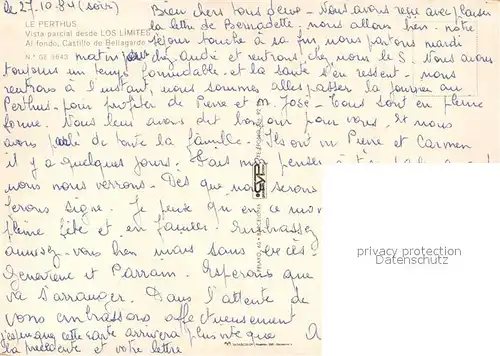 le 27.10.84 (soir)
LE PERTHUS
Vista parcial desde LOS LÍMITES
Al fondo, Castillo de Bellagarde
N.º GE 5643
Bien chers tous deux - Nous avons reçu avec plaisir
la lettre de Bernadette. nous allons bien - notre
séjour touche à sa fin nous partons mardi
matin André et rentrons chez nous le 5. Nous avons
toujours un temps formidable et la santé s'en ressent - nous
rentrons à l'instant, nous sommes allés passer la journée au
Perthus - pour profiter de Pierre et M. José - tous sont en pleine
forme. Nous leur avons dit bonjour pour vous. Et nous
avons parlé de toute la famille. Ils ont vu Pierre et Carmen
il y a quelques jours. Fais moi penser
nous nous verrons - Dès que nous serons
ferons signe. Je pense qu'en ce mo
pleine fête et en famille. Embrassez
amusez-vous bien mais sans excès.
Geneviève et Parrain. Esperons que
va s'arranger. Dans l'attente de
vous embrassons affectueusement
j'espère que cette carte arrivera plus vite que
la précédente et votre lettre
privacy protection
datenschutz